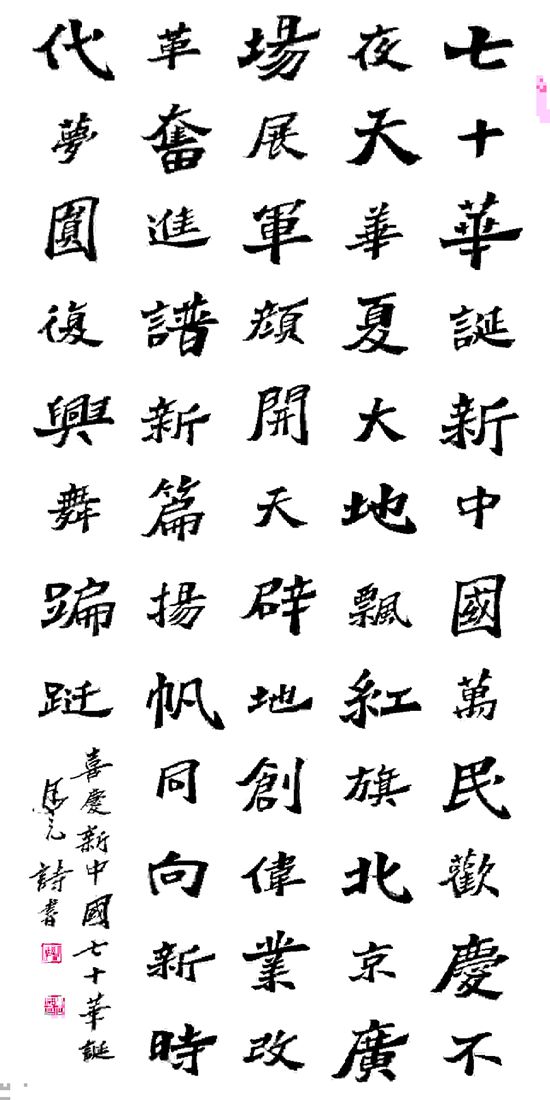 七十華誕新中國萬民歡慶不
夜天華夏大地飄紅旗北京廣
場展軍顔開天辟地創偉業改
革奮進譜新篇揚帆同向新時
代夢圓復興舞蹁跹
喜慶新中國七十華誕
詩書